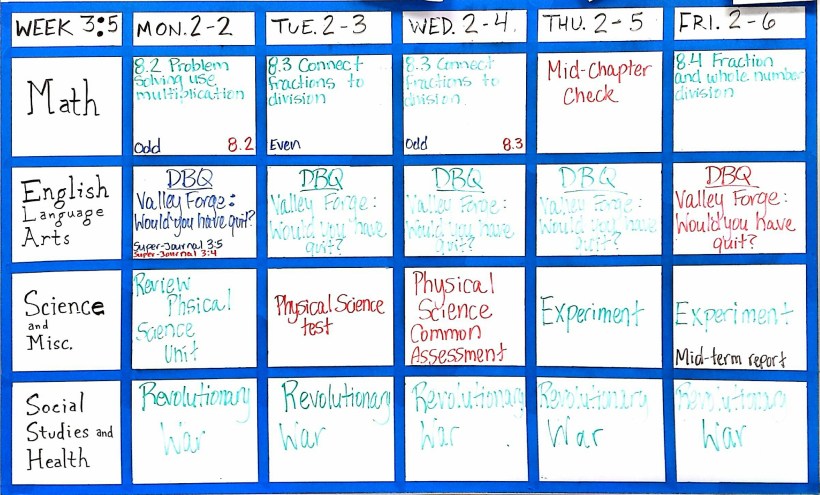 WEEK 3:5
MON. 2-2
TUE. 2-3
WED. 2-4.
THU. 2-5
FRI. 2-6
Math
8.2 Problem
solving use
multiplication
Odd 8.2
8.3 Connect
fractions to
division
Even
8.3 Connect
fractions to
division
Odd 8.3
Mid-Chapter
Check
8.4 Fraction
and whole number
division
English
Language
Arts
DBQ
Valley Forge:
Would you have quit?
Super-Journal 3:5
Super-Journal 3:4
DBQ
Valley Forge:
Would you have
quit?
DBQ
Valley Forge:
Would you have
quit?
DBQ
Valley Forge:
Would you have
quit?
DBQ
Valley Forge:
Would you have
quit?
Science
and
Misc.
Review
Phsical
Science
Unit
Physical Science
test
Physical
Science
Common
Assessment
Experiment
Experiment
Mid-term report
Social
Studies and
Health
Revolutionary
War
Revolutionary
War
Revolutionary
War
Revolutionary
War
Revolutionary
War